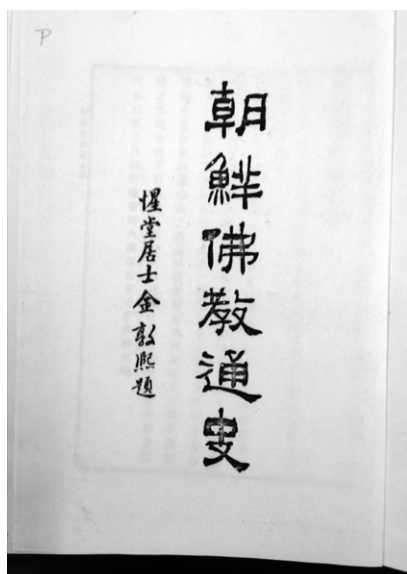 朝鮮佛教通史
惺堂居士金敦熙題
P